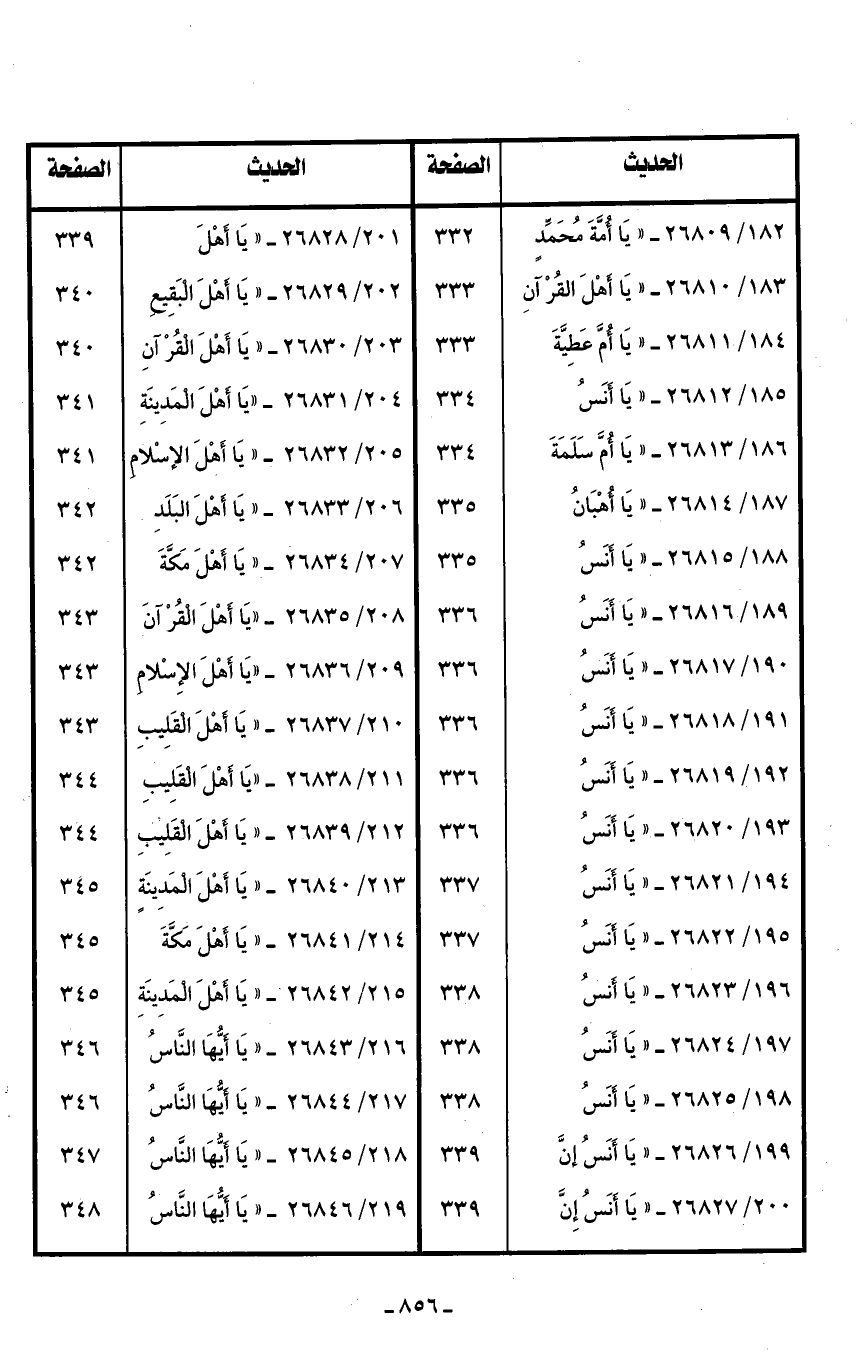 الحديث الصفحة الحديث الصفحة
١٨٢/ ٢٦٨٠٩ ـ « يَا أُمَّةَ مُحَمَّدٍ ٣٣٢
١٨٣/ ٢٦٨١٠ ـ « يَا أَهْلَ القُرْآنِ ٣٣٣
١٨٤/ ٢٦٨١١ ـ « يَا أُمَّ عَطِيَّةَ ٣٣٣
١٨٥/ ٢٦٨١٢ ـ « يَا أَنَسُ ٣٣٤
١٨٦/ ٢٦٨١٣ ـ « يَا أُمَّ سَلَمَةَ ٣٣٤
١٨٧/ ٢٦٨١٤ ـ « يَا أُهْبَانُ ٣٣٥
١٨٨/ ٢٦٨١٥ ـ « يَا أَنَسُ ٣٣٥
١٨٩/ ٢٦٨١٦ ـ « يَا أَنَسُ ٣٣٦
١٩٠/ ٢٦٨١٧ ـ « يَا أَنَسُ ٣٣٦
١٩١/ ٢٦٨١٨ ـ « يَا أَنَسُ ٣٣٦
١٩٢/ ٢٦٨١٩ ـ « يَا أَنَسُ ٣٣٦
١٩٣/ ٢٦٨٢٠ ـ « يَا أَنَسُ ٣٣٦
١٩٤/ ٢٦٨٢١ ـ « يَا أَنَسُ ٣٣٧
١٩٥/ ٢٦٨٢٢ ـ « يَا أَنَسُ ٣٣٧
١٩٦/ ٢٦٨٢٣ ـ « يَا أَنَسُ ٣٣٨
١٩٧/ ٢٦٨٢٤ ـ « يَا أَنَسُ ٣٣٨
١٩٨/ ٢٦٨٢٥ ـ « يَا أَنَسُ ٣٣٨
١٩٩/ ٢٦٨٢٦ ـ « يَا أَنَسُ إِنَّ ٣٣٩
٢٠٠/ ٢٦٨٢٧ ـ « يَا أَنَسُ إِنَّ ٣٣٩
٢٠١/ ٢٦٨٢٨ ـ « يَا أَهْلَ ٣٣٩
٢٠٢/ ٢٦٨٢٩ ـ « يَا أَهْلَ الْبَقِيعِ ٣٤٠
٢٠٣/ ٢٦٨٣٠ ـ « يَا أَهْلَ الْقُرْآنِ ٣٤٠
٢٠٤/ ٢٦٨٣١ ـ «يَا أَهْلَ الْمَدِينَةِ ٣٤١
٢٠٥/ ٢٦٨٣٢ ـ « يَا أَهْلَ الإِسْلاَمِ ٣٤١
٢٠٦/ ٢٦٨٣٣ ـ « يَا أَهْلَ البَلَدِ ٣٤٢
٢٠٧/ ٢٦٨٣٤ ـ « يَا أَهْلَ مَكَّةَ ٣٤٢
٢٠٨/ ٢٦٨٣٥ ـ «يَا أَهْلَ الْقُرْآنَ ٣٤٣
٢٠٩/ ٢٦٨٣٦ ـ «يَا أَهْلَ الإِسْلاَمِ ٣٤٣
٢١٠/ ٢٦٨٣٧ ـ « يَا أَهْلَ الْقَلِيبِ ٣٤٣
٢١١/ ٢٦٨٣٨ ـ «يَا أَهْلَ الْقَلِيبِ ٣٤٤
٢١٢/ ٢٦٨٣٩ ـ « يَا أَهْلَ الْقَلِيبِ ٣٤٤
٢١٣/ ٢٦٨٤٠ ـ « يَا أَهْلَ الْمَدِينَةِ ٣٤٥
٢١٤/ ٢٦٨٤١ ـ « يَا أَهْلَ مَكَّةَ ٣٤٥
٢١٥/ ٢٦٨٤٢ ـ « يَا أَهْلَ الْمَدِينَةِ ٣٤٥
٢١٦/ ٢٦٨٤٣ ـ « يَا أَيُّهَا النَّاسُ ٣٤٦
٢١٧/ ٢٦٨٤٤ ـ « يَا أَيُّهَا النَّاسُ ٣٤٦
٢١٨/ ٢٦٨٤٥ ـ « يَا أَيُّهَا النَّاسُ ٣٤٧
٢١٩/ ٢٦٨٤٦ ـ « يَا أَيُّهَا النَّاسُ ٣٤٨
ـ ٨٥٦ ـ